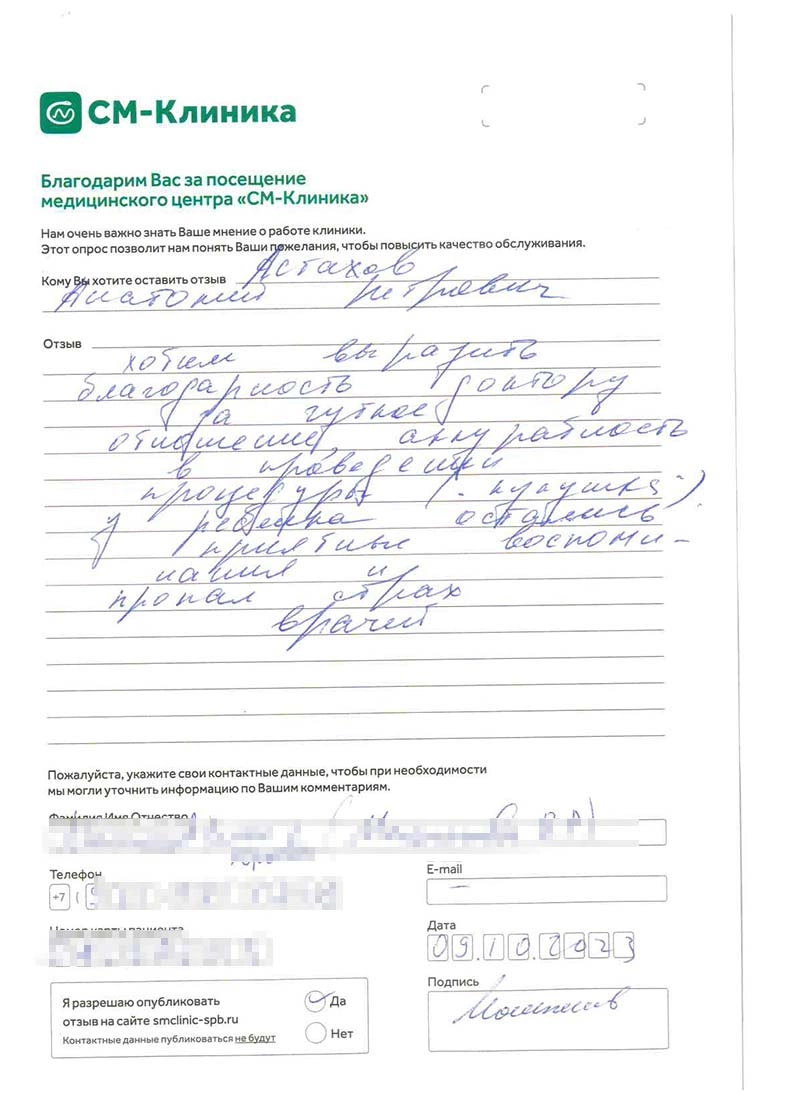 СМ-Клиника
Благодарим Вас за посещение
медицинского центра «СМ-Клиника»
Нам очень важно знать Ваше мнение о работе клиники.
Этот опрос позволит нам понять Ваши пожелания, чтобы повысить качество обслуживания.
Кому Вы хотите оставить отзыв Астахов
Анатолий Петрович
Отзыв
хотим выразить
благодарность доктору
за чуткое
отношение, аккуратность
в проведении
процедуры ("кукушка").
у ребенка остались
приятные воспоми-
нания и
пропал страх
врачей
Пожалуйста, укажите свои контактные данные, чтобы при необходимости
мы могли уточнить информацию по Вашим комментариям.
Фамилия Имя Отчество
Телефон
+7 (
E-mail
–
Номер карты пациента
Дата
09.10.2023
Подпись
Я разрешаю опубликовать
отзыв на сайте smclinic-spb.ru
Контактные данные публиковаться не будут
Да
Нет